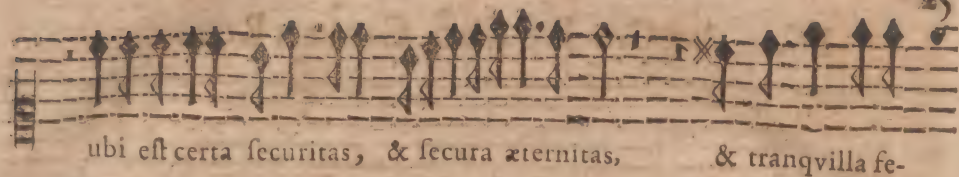 ubi eſt certa ſecuritas, & ſecura æternitas, & tranqvilla fe-